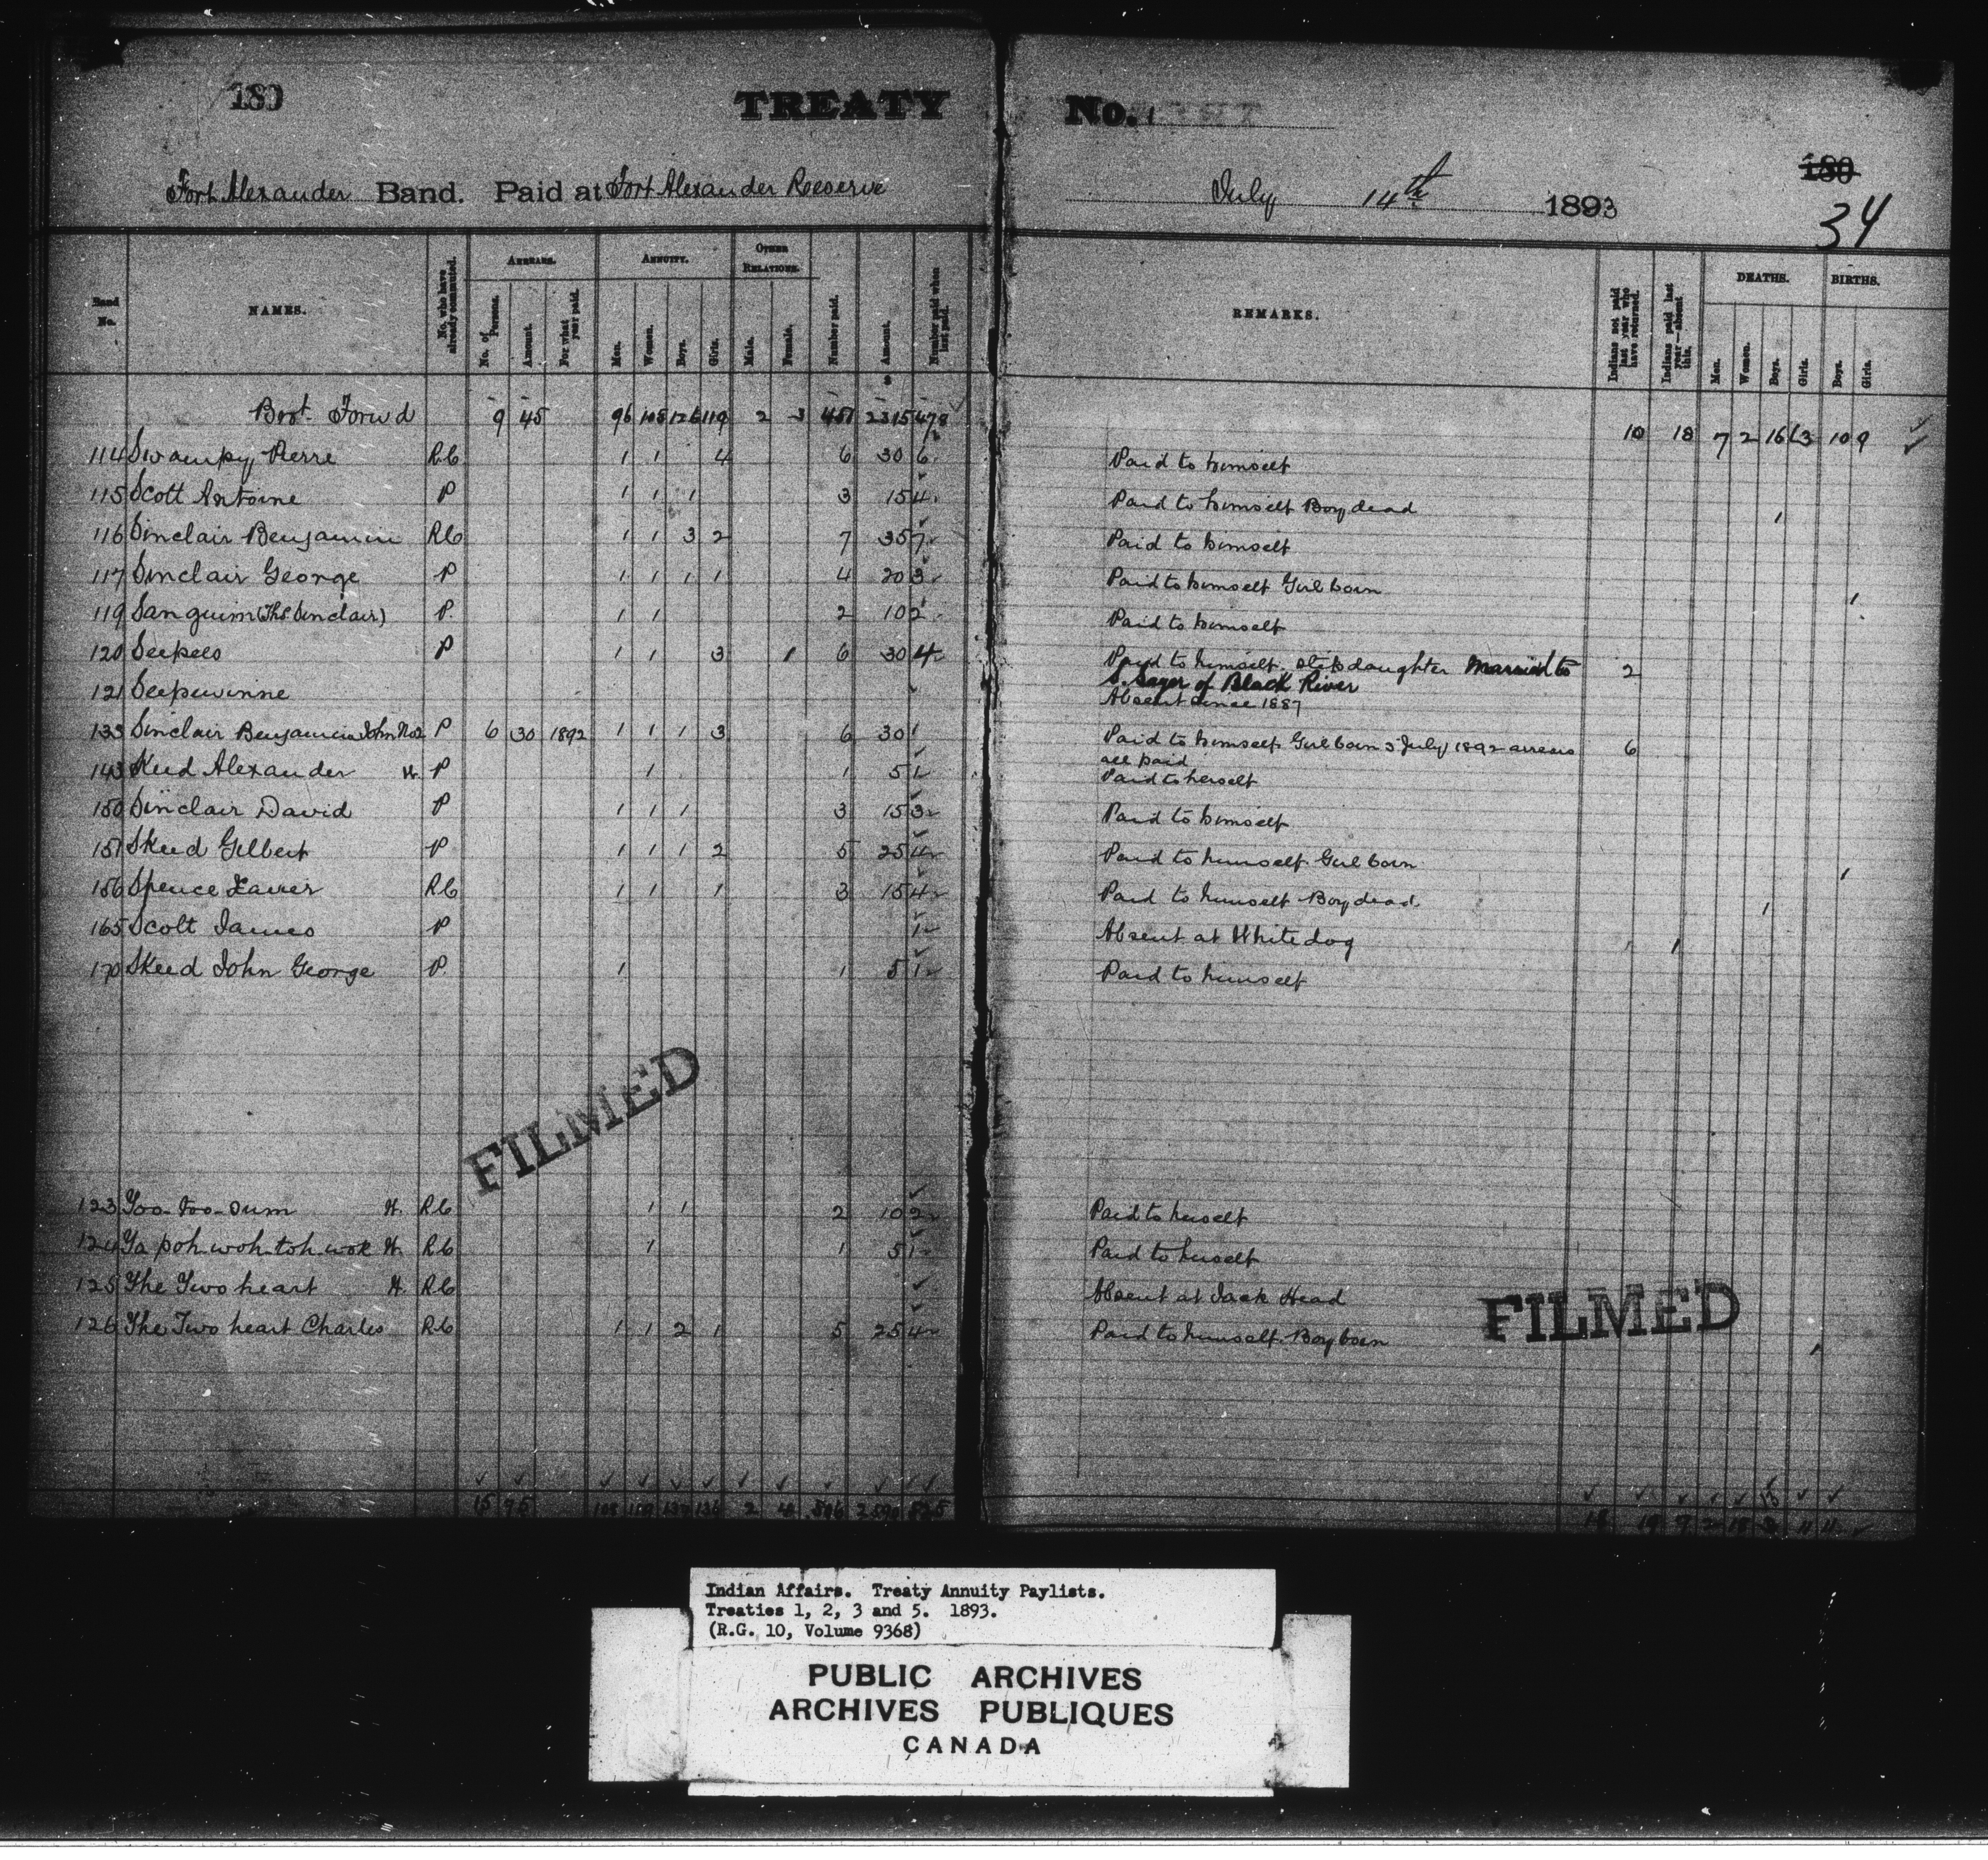 180
TREATY No. 1
180
34
Fort Alexander Band. Paid at Fort Alexander Reeserve July 14th 1893
Band No. NAMES. No. who have already commuted. ARREARS. No. of Persons. Amount. For what year paid. ANNUITY. Men. Women. Boys. Girls. OTHER RELATIONS. Male. Female. Number paid. Amount. Number paid when last paid. REMARKS. Indians not paid last year who have returned. Indians paid last year—absent this. DEATHS. Men. Women. Boys. Girls. BIRTHS. Boys. Girls.
Brot. Forwd 9 45 96 108 126 119 2 3 451 2315 478 10 18 7 2 16 13 10 9
114 Swampy Pierre RC 1 1 4 6 30 6 Paid to himself
115 Scott Antoine P 1 1 1 3 15 4 Paid to himself Boy dead 1
116 Sinclair Benjamin RC 1 1 3 2 7 35 7 Paid to himself
117 Sinclair George P 1 1 1 1 4 20 3 Paid to himself Girl born 1
119 Sanguim (Thos Sinclair) P. 1 1 2 10 2 Paid to himself
120 Seepees P 1 1 3 1 6 30 4 Paid to himself. Stepdaughter Married to 2
S. Sayer of Black River
121 Seepewinne Absent since 1887
133 Sinclair Benjamin John No2 P 6 30 1892 1 1 1 3 6 30 1 Paid to himself Girl born 5 July 1892 arrears 6
all paid
143 Skeed Alexander W. P 1 1 5 1 Paid to herself
150 Sinclair David P 1 1 1 3 15 3 Paid to himself
151 Skeed Gilbert P 1 1 1 2 5 25 4 Paid to himself Girl born 1
156 Spence Xavier RC 1 1 1 3 15 4 Paid to himself Boy dead. 1
165 Scott James P 1 Absent at Whitedog 1
170 Skeed John George P. 1 1 5 1 Paid to himself
FILMED
123 Too-too-sum W. RC 1 1 2 10 2 Paid to herself
124 Ta poh woh-toh-wok W. RC 1 1 5 1 Paid to herself
125 The Two heart W. RC Absent at Jack Head
126 The Two heart Charles RC 1 1 2 1 5 25 4 Paid to himself. Boy born 1
FILMED
15 75 108 119 137 136 2 4 506 2590 525 18 19 7 2 18
Indian Affairs. Treaty Annuity Paylists.
Treaties 1, 2, 3 and 5. 1893.
(R.G. 10, Volume 9368)
PUBLIC ARCHIVES
ARCHIVES PUBLIQUES
CANADA